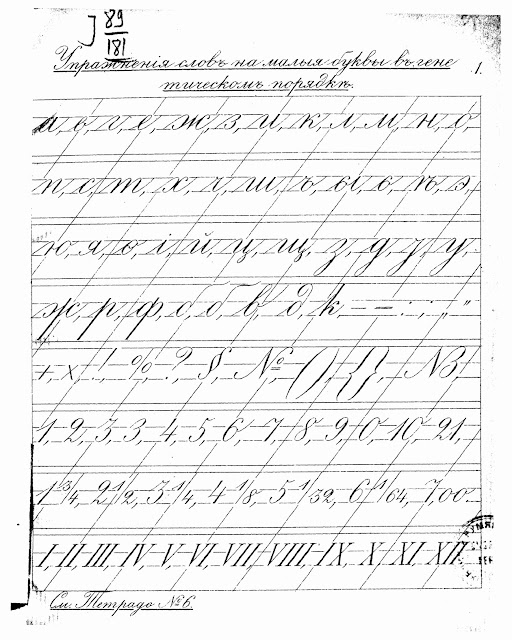 89
181
Упражненія словъ на малыя буквы въ гене
тическомъ порядкѣ.
1.
а, в, г, е, ж, з, и, к, л, м, н, о,
п, с, т, х, ч, ш, ъ, ы, ь, ѣ, э,
ю, я, ѵ, і, й, ц, щ, з, д, у, у,
ж, р, ф, б, б, в, д, k, – – : ; „ "
+, ×, !, %, ?, §, №, ( ), { }, NB,
1, 2, 3, 3, 4, 5, 6, 7, 8, 9, 0, 10, 21,
1 3/4, 2 1/2, 3 1/4, 4 1/8, 5 1/32, 6 1/64, 7,00.
I, II, III, IV, V, VI, VII, VIII, IX, X, XI, XII,
См. Тетрадь № 6.